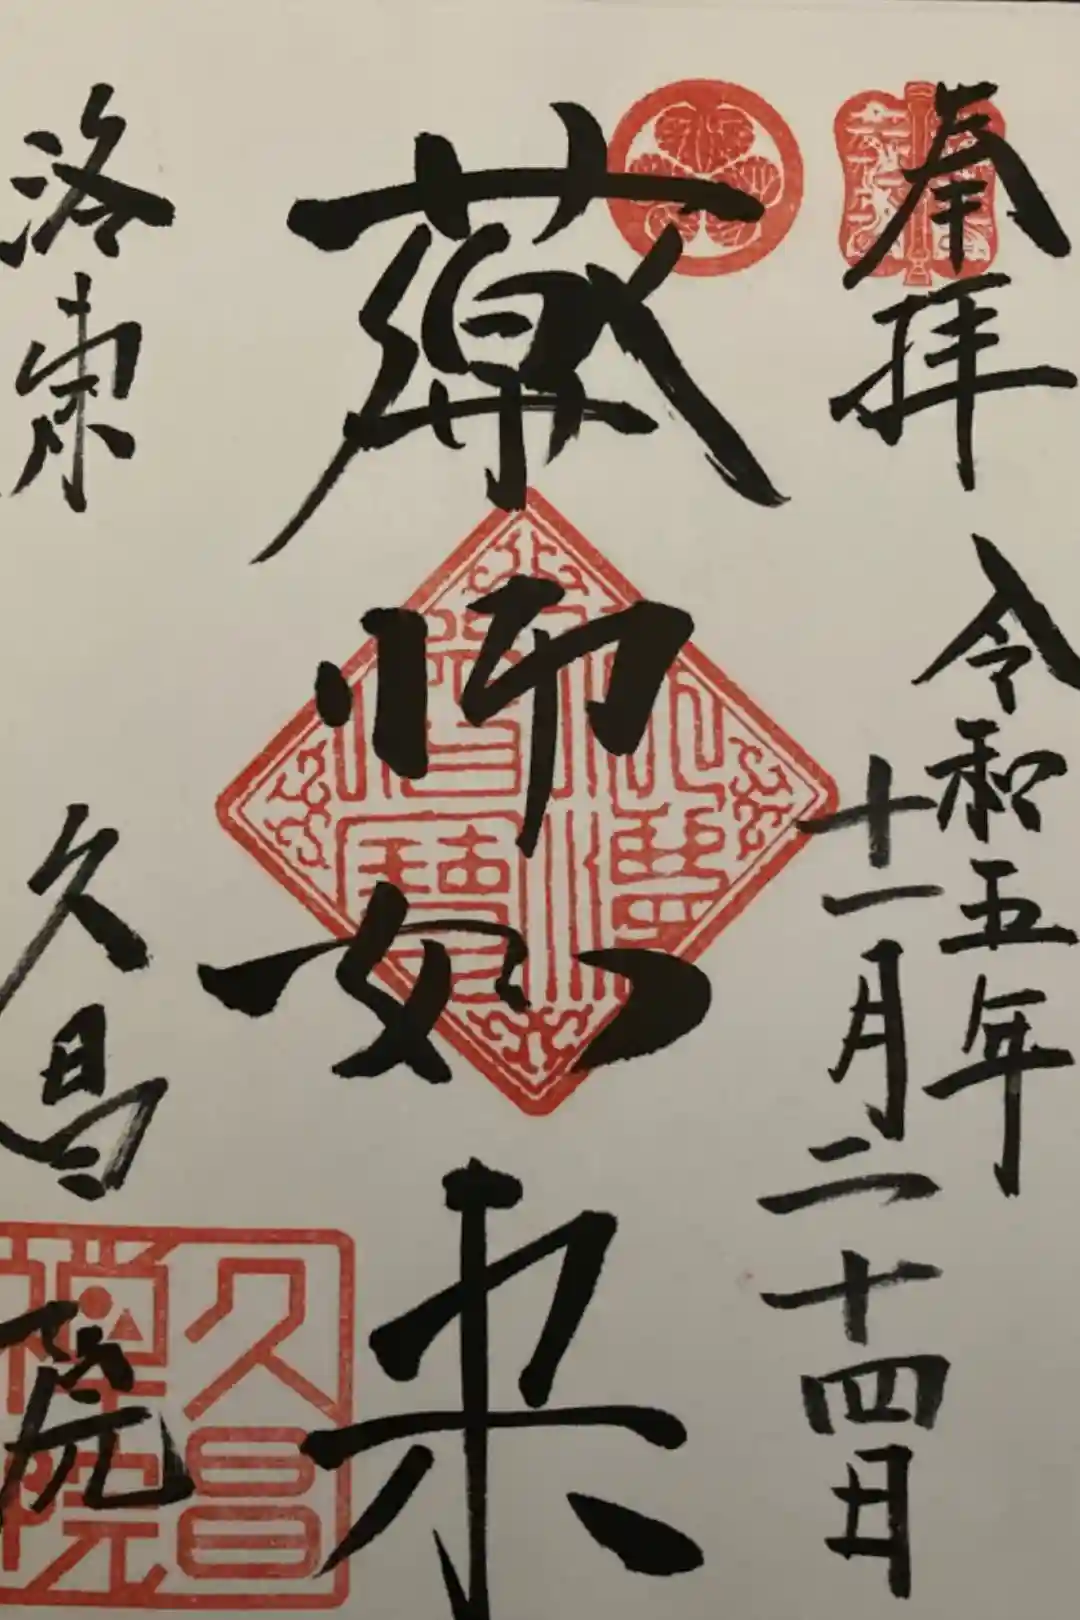 奉拝
令和五年
十一月二十四日
薬師如来
洛東
久昌院
久昌
禅院